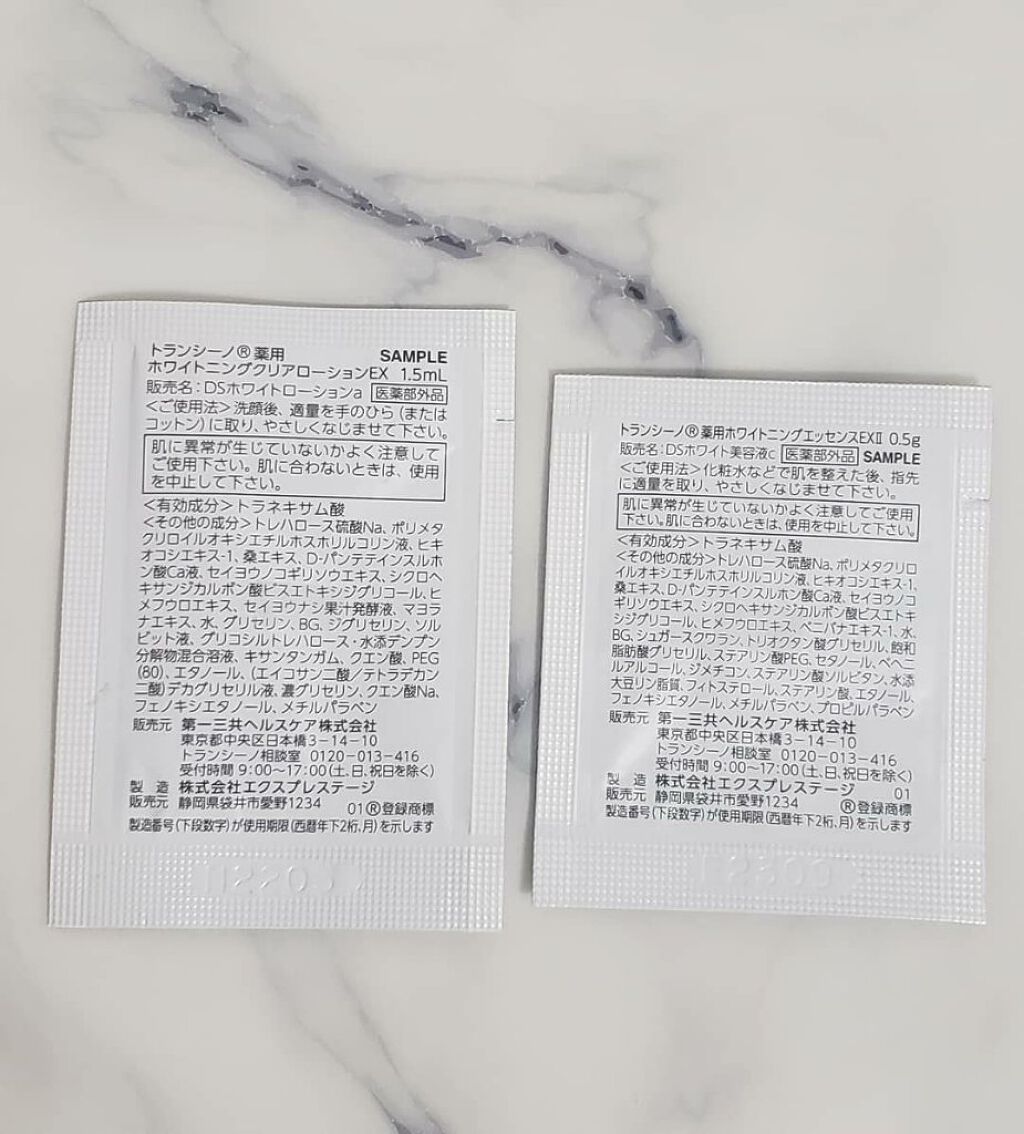 トランシーノ®薬用 SAMPLE
ホワイトニングクリアローションEX 1.5mL
販売名：DSホワイトローションa 医薬部外品
＜ご使用法＞洗顔後、適量を手のひら（または
コットン）に取り、やさしくなじませて下さい。
肌に異常が生じていないかよく注意して
ご使用下さい。肌に合わないときは、使用
を中止して下さい。
＜有効成分＞トラネキサム酸
＜その他の成分＞トレハロース硫酸Na、ポリメタ
クリロイルオキシエチルホスホリルコリン液、ヒキ
オコシエキス-1、桑エキス、D-パンテテインスルホ
ン酸Ca液、セイヨウノコギリソウエキス、シクロヘ
キサンジカルボン酸ビスエトキシジグリコール、ヒ
メフウロエキス、セイヨウナシ果汁発酵液、マヨラ
ナエキス、水、グリセリン、BG、ジグリセリン、ソル
ビット液、グリコシルトレハロース・水添デンプン
分解物混合溶液、キサンタンガム、クエン酸、PEG
(80)、エタノール、(エイコサン二酸／テトラデカン
二酸)デカグリセリル液、濃グリセリン、クエン酸Na、
フェノキシエタノール、メチルパラベン
販売元 第一三共ヘルスケア株式会社
東京都中央区日本橋3－14－10
トランシーノ相談室 0120－013－416
受付時間 9：00～17：00（土、日、祝日を除く）
製造 株式会社エクスプレステージ
販売元 静岡県袋井市愛野1234 01 ®登録商標
製造番号（下段数字）が使用期限（西暦年下2桁、月）を示します
トランシーノ®薬用ホワイトニングエッセンスEXⅡ 0.5g
販売名：DSホワイト美容液c 医薬部外品 SAMPLE
＜ご使用法＞化粧水などで肌を整えた後、指先
に適量を取り、やさしくなじませて下さい。
肌に異常が生じていないかよく注意してご使用
下さい。肌に合わないときは、使用を中止して下さい。
＜有効成分＞トラネキサム酸
＜その他の成分＞トレハロース硫酸Na、ポリメタクリロ
イルオキシエチルホスホリルコリン液、ヒキオコシエキス-1、
桑エキス、D-パンテテインスルホン酸Ca液、セイヨウノコ
ギリソウエキス、シクロヘキサンジカルボン酸ビスエトキ
シジグリコール、ヒメフウロエキス、ベニバナエキス-1、水、
BG、シュガースクワラン、トリオクタン酸グリセリル、飽和
脂肪酸グリセリル、ステアリン酸PEG、セタノール、ベヘニ
ルアルコール、ジメチコン、ステアリン酸ソルビタン、水添
大豆リン脂質、フィトステロール、ステアリン酸、エタノール、
フェノキシエタノール、メチルパラベン、プロピルパラベン
販売元 第一三共ヘルスケア株式会社
東京都中央区日本橋3－14－10
トランシーノ相談室 0120－013－416
受付時間 9：00～17：00（土、日、祝日を除く）
製造 株式会社エクスプレステージ 01
販売元 静岡県袋井市愛野1234 ®登録商標
製造番号（下段数字）が使用期限（西暦年下2桁、月）を示します